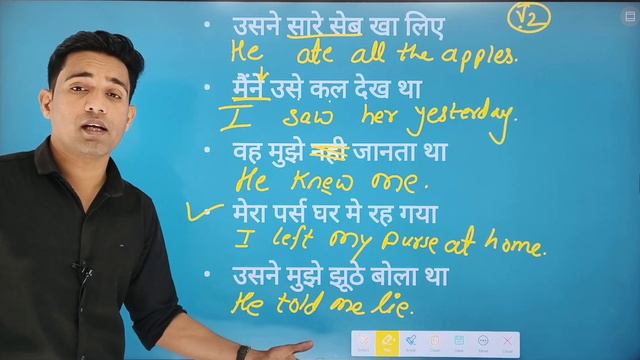 V2
उसने सारे सेब खा लिए
He ate all the apples.
मैंने उसे कल देख था
I saw her yesterday.
वह मुझे नही जानता था
He knew me.
मेरा पर्स घर मे रह गया
I left my purse at home.
उसने मुझे झूठे बोला था
He told me lie.